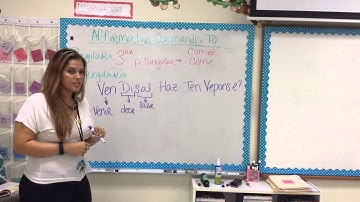 Affirmative Commands Tú
Regulars 3ra p. singular→ comer
come
Irregulars
Ven Di Sal Haz Ten Ve pon se?
venir decir salir